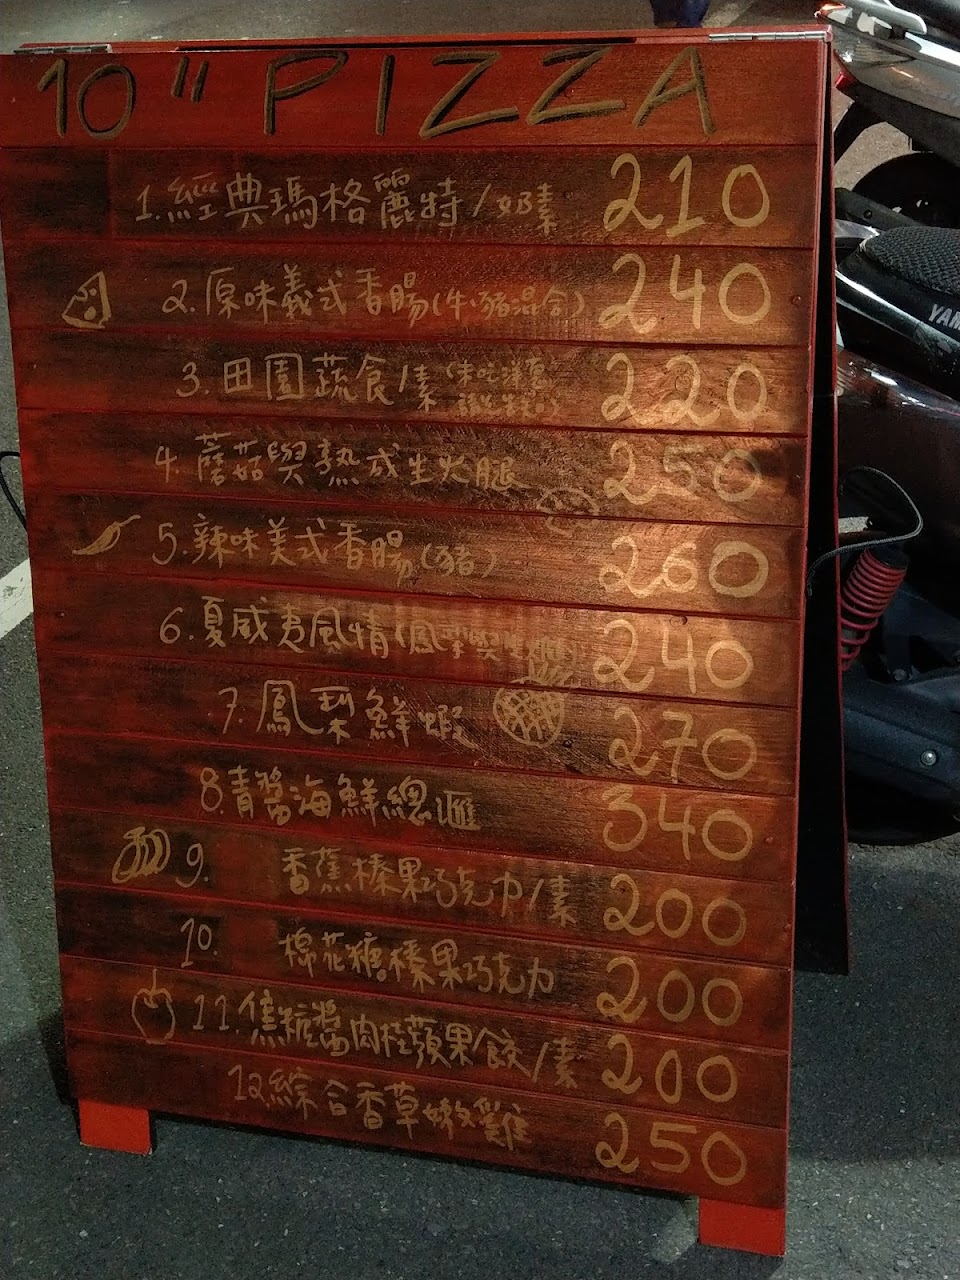 10" PIZZA
1.經典瑪格麗特/奶素 210
2.原味義式香腸(牛.豬混合) 240
3.田園蔬食/素 220
4.蘑菇與熟成生火腿 250
5.辣味美式香腸(豬) 260
6.夏威夷風情(鳳梨與 240
7.鳳梨鮮蝦 270
8.青醬海鮮總匯 340
9. 香蕉榛果巧克力/素 200
10. 棉花糖榛果巧克力 200
11.焦糖醬肉桂蘋果餃/素 200
12.綜合香草嫩雞 250
YAM